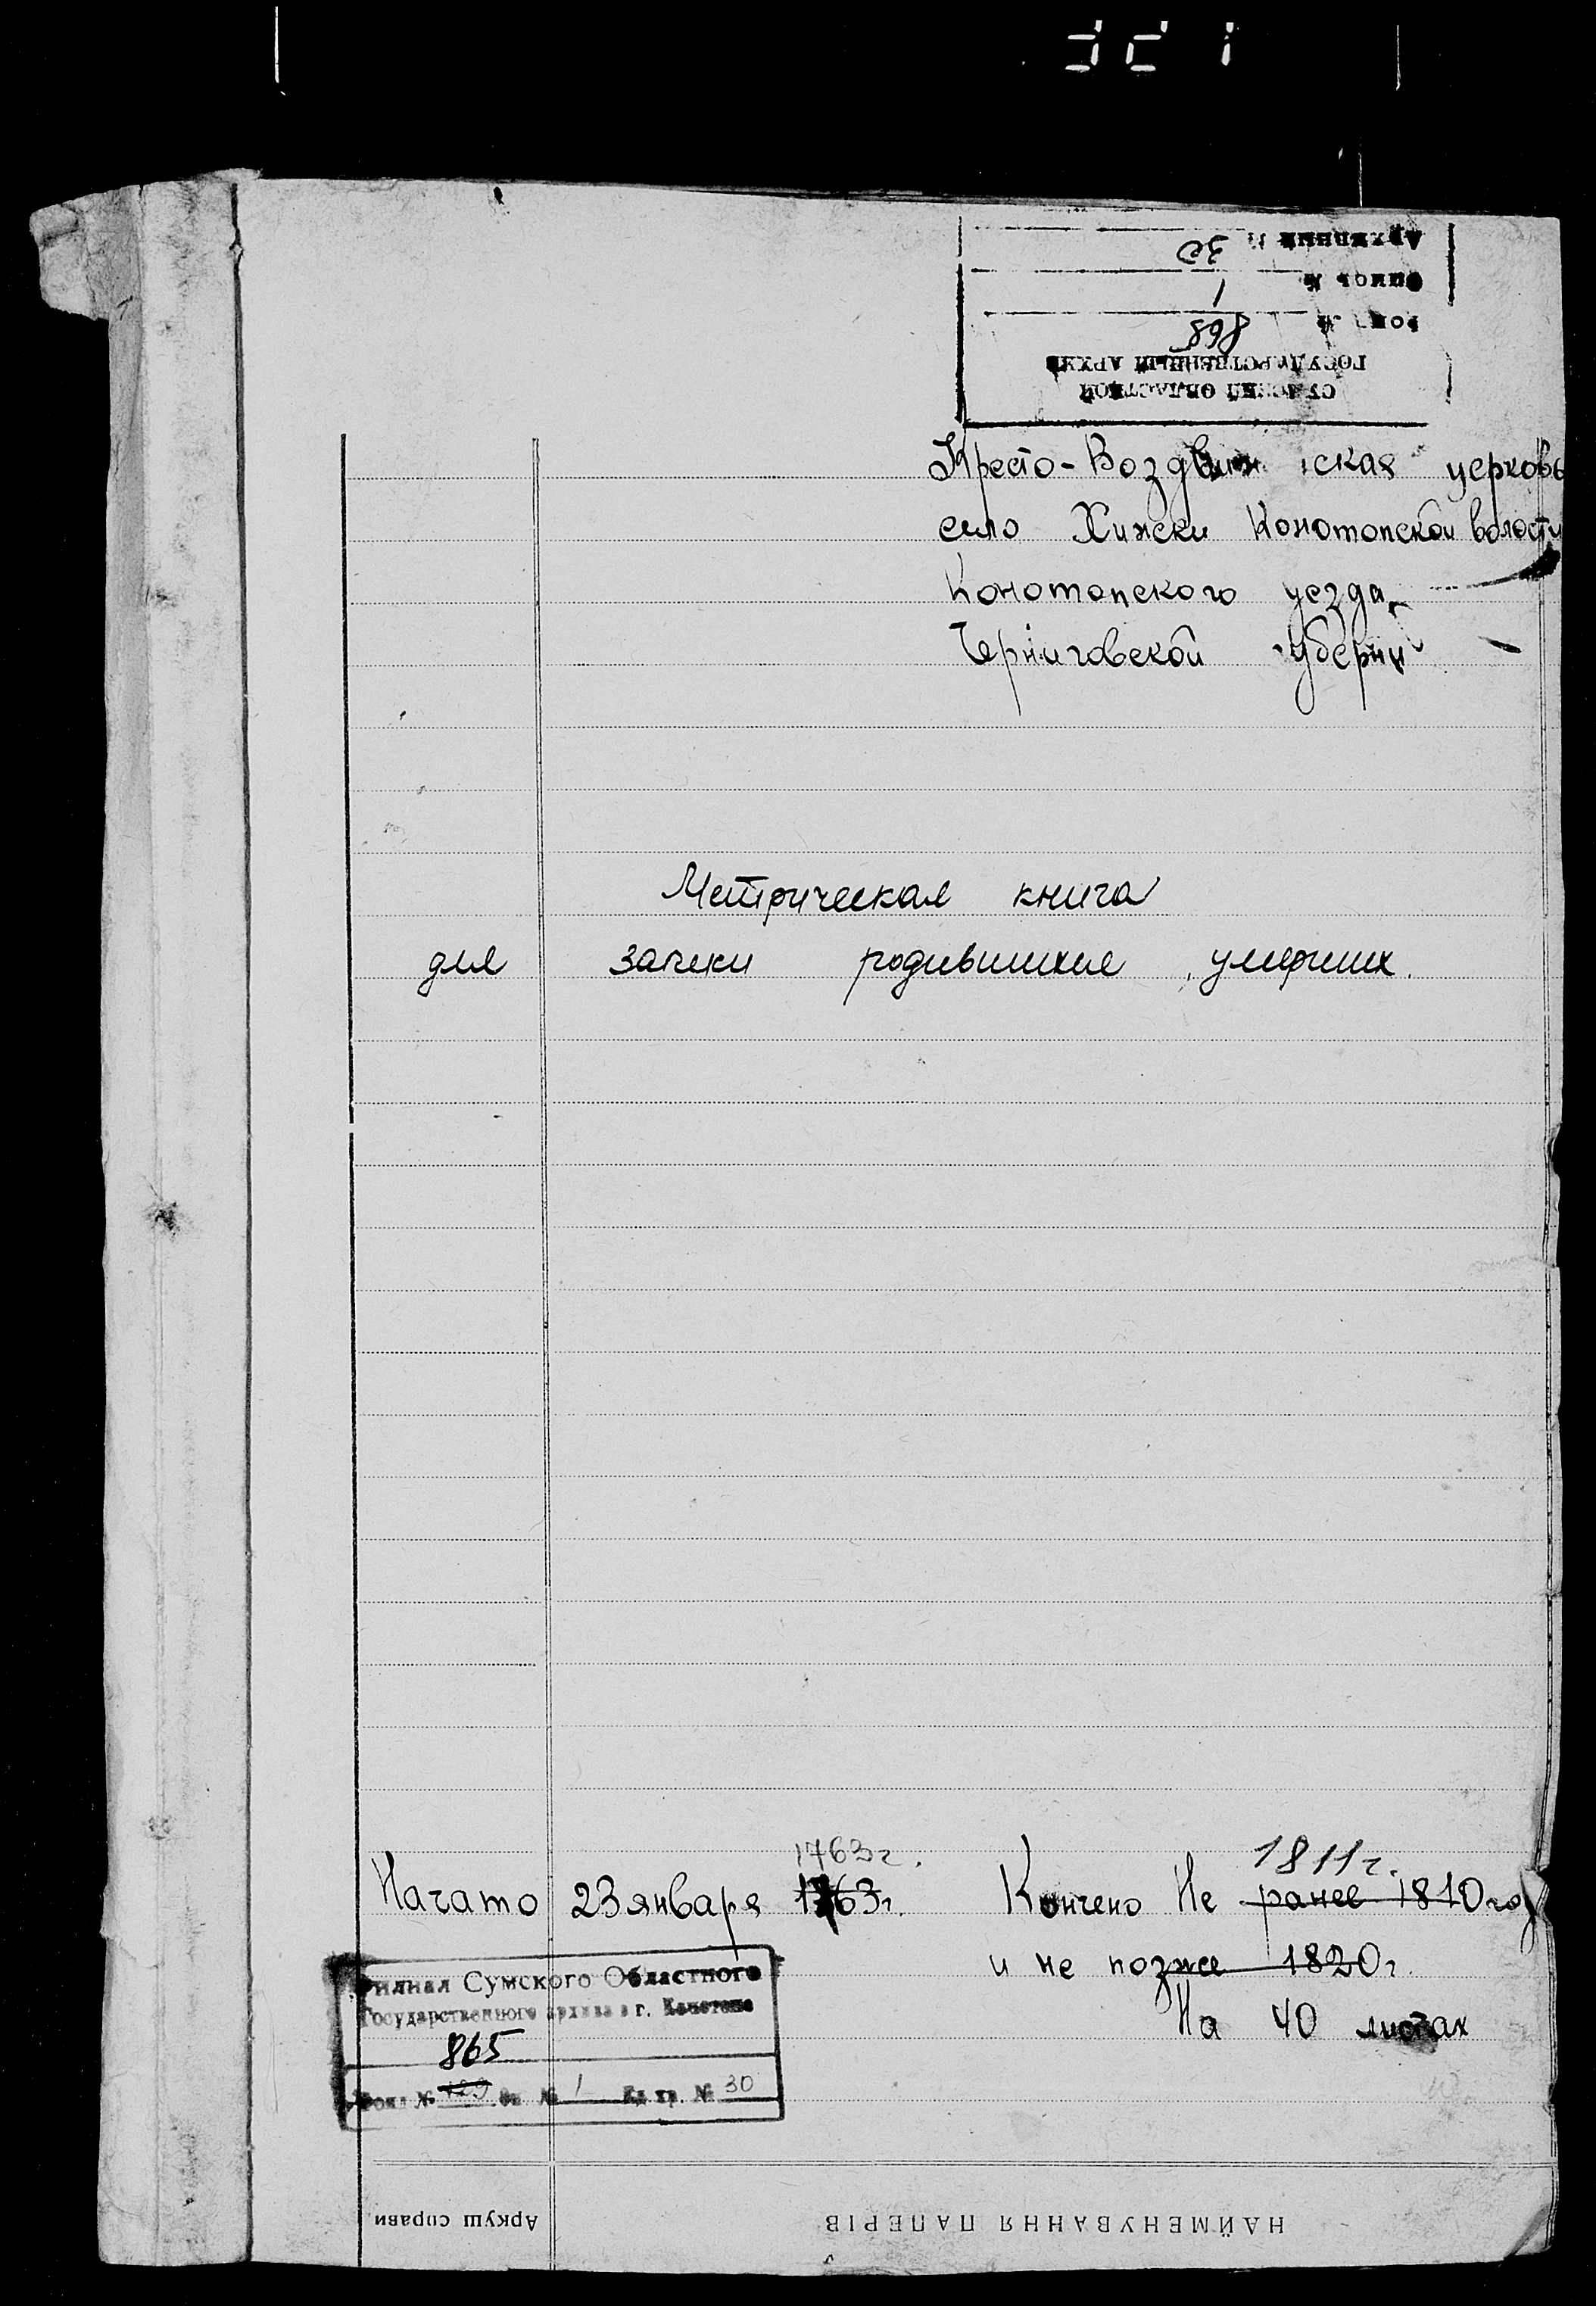 Архивный № 30
Опись № 1
Фонд № 868
ГОСУДАРСТВЕННЫЙ АРХИВ
СУМСКИЙ ОБЛАСТНОЙ
Кресто-Воздвиж ская церковь
село Хижски Конотопской волости
Конотопского уезда
Черниговской губерни
Метрическая книга
для записи родившихся, умерших.
1763г. 1811г.
Начато 23 января 1763г. Кончено Не ранее 1810 год
и не позже 1820г.
На 40 листах
Филиал Сумского Областного
Государственного архива в г. Конотопе
865
Фонд № 129 Оп. № 1 Ед. хр. № 30
Аркуш справи НАЙМЕНУВАННЯ ПАПЕРІВ